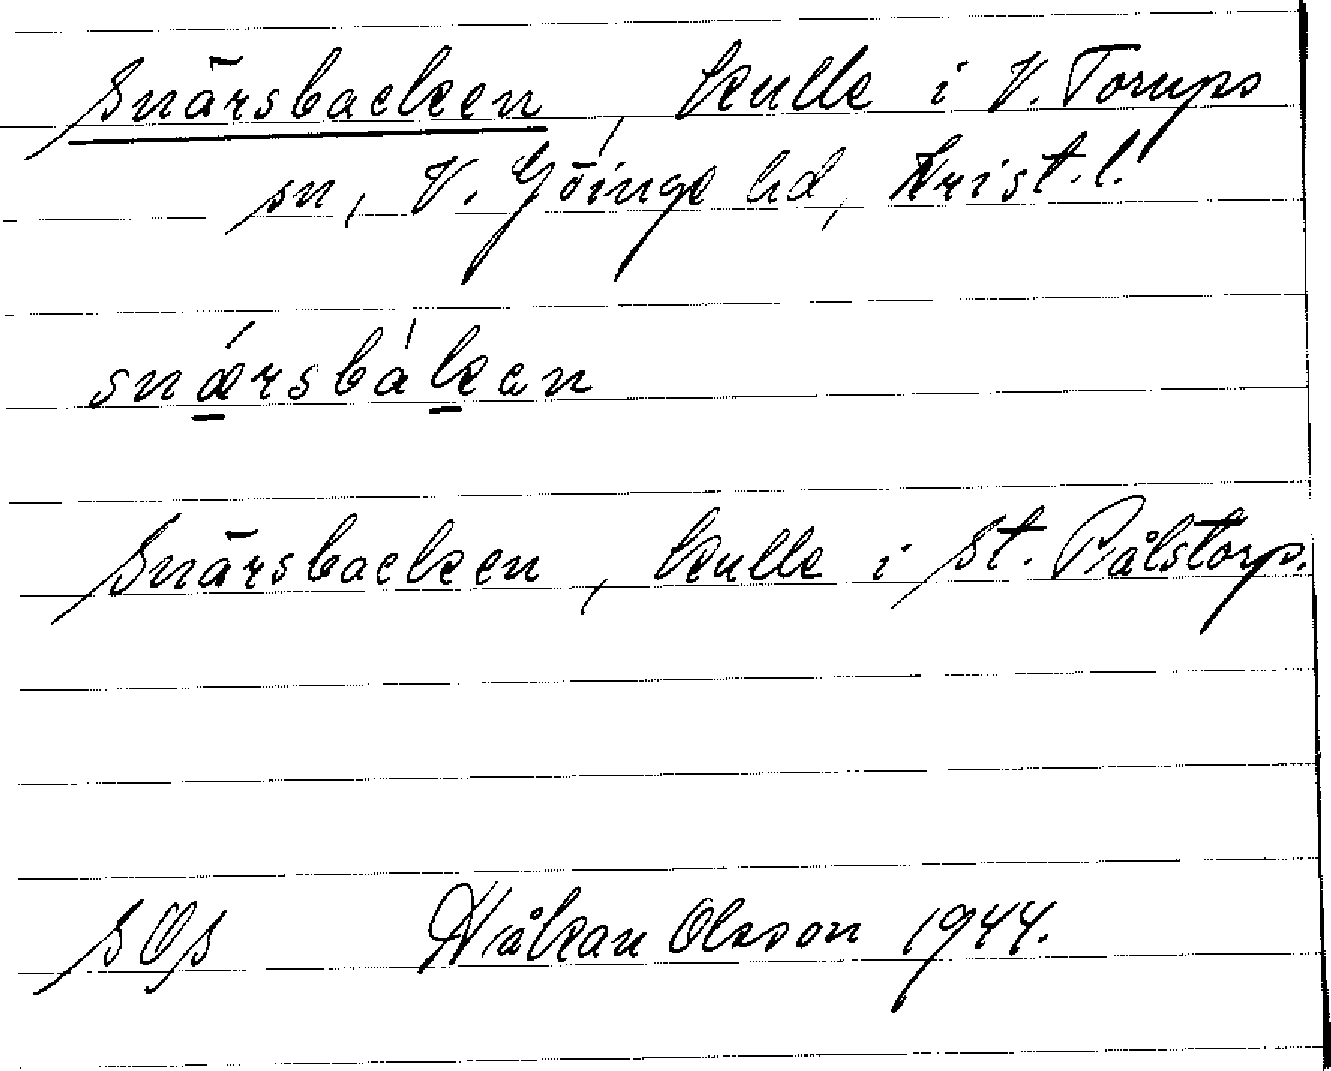 Snärsbacken, kulle i V. Torups
sn, V. Göinge hd, Krist. l.
snǽrsbàken
Snärsbacken, kulle i St. Pålstorp.
Håkan Olsson 1944.